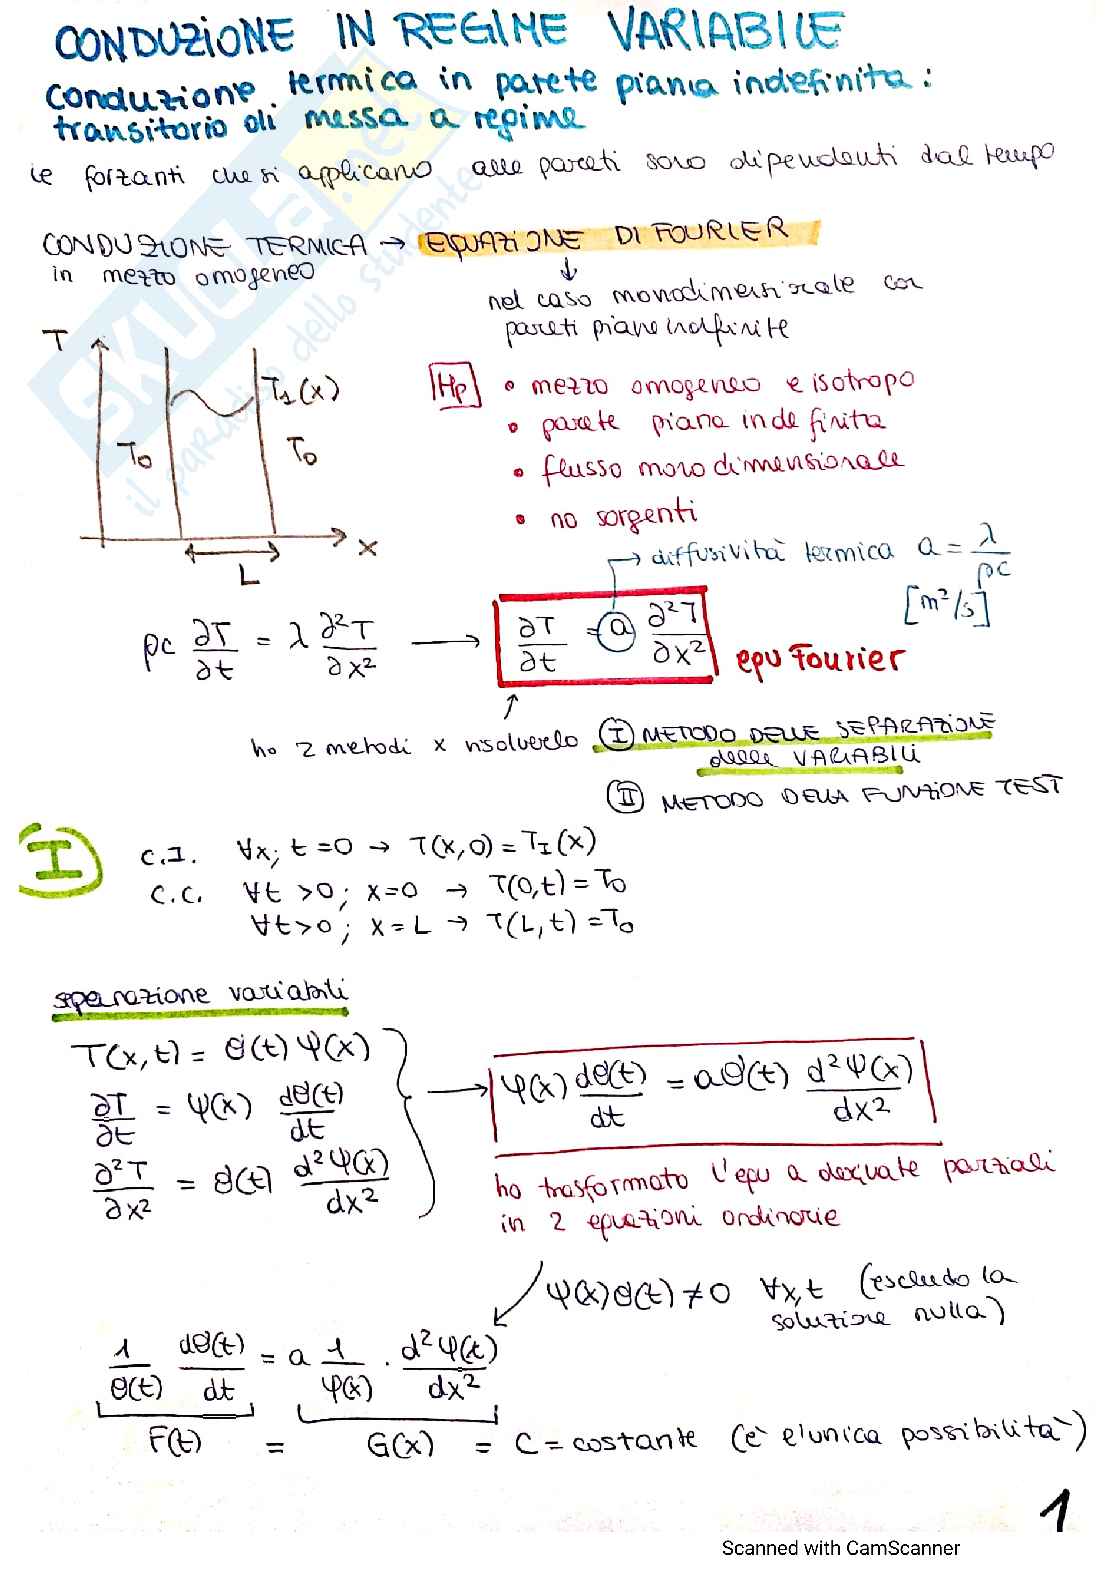 CONDUZIONE IN REGIME VARIABILE
conduzione termica in parete piana indefinita:
transitorio di messa a regime
le forzanti che si applicano alle pareti sono dipendenti dal tempo
CONDUZIONE TERMICA → EQUAZIONE DI FOURIER
in mezzo omogeneo
↓
nel caso monodimensionale con
pareti piane indefinite
T
T₁(x)
T₀
T₀
x
L
Hp
• mezzo omogeneo e isotropo
• parete piana indefinita
• flusso monodimensionale
• no sorgenti
→ diffusività termica a = λ/ρc
[m²/s]
ρc ∂T/∂t = λ ∂²T/∂x² → ∂T/∂t = a ∂²T/∂x² equ Fourier
ho 2 metodi x risolverlo I METODO DELLE SEPARAZIONE
delle VARIABILI
II METODO DELLA FUNZIONE TEST
I
C.I. ∀x; t=0 → T(x,0) = T_I(x)
C.C. ∀t >0; x=0 → T(0,t) = T₀
∀t>0; x=L → T(L,t) = T₀
separazione variabili
T(x,t) = θ(t) Ψ(x)
∂T/∂t = Ψ(x) dθ(t)/dt
∂²T/∂x² = θ(t) d²Ψ(x)/dx²
→ Ψ(x) dθ(t)/dt = aθ(t) d²Ψ(x)/dx²
ho trasformato l'equ a derivate parziali
in 2 equazioni ordinarie
Ψ(x)θ(t) ≠ 0 ∀x,t (escludo la
soluzione nulla)
1/θ(t) dθ(t)/dt = a 1/Ψ(x) · d²Ψ(t)/dx²
F(t) = G(x) = C = costante (è l'unica possibilità)
1
Scanned with CamScanner
SKUOLA.net
il paradiso dello studente